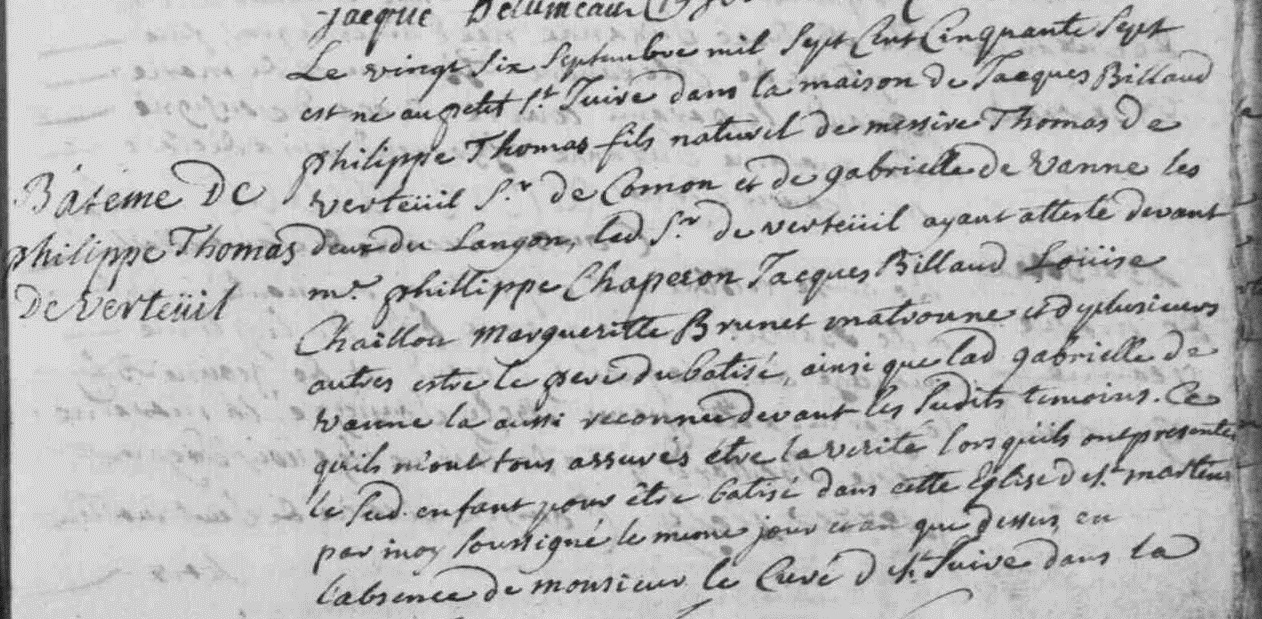 jacque Delumeau
Le vingt six septembre mil sept Cent Cinquante sept
est né au petit St Juire dans la maison de Jacques Billaud
philippe Thomas fils naturel de messire Thomas de
verteüil Sr de Comon et de gabrielle de vanne les
Batême de
philippe Thomas
De verteüil
deux du Langon, led Sr de verteüil ayant attesté devant
mr phillippe Chaperon Jacques Billaud Loüise
Chaillou margueritte Brunet matronne et dplusieurs
autres estre le pere du batisé, ainsi que lad gabrielle de
vanne la aussi reconnu devant les sudits temoins. Ce
quils m'ont tous assurés être la verité lorsqu'ils ont presentés
le sud. enfant pour être batisé dans cette Eglise de St martin
par moy soussigné le meme jour et an que dessus en
l'absence de monsieur le Curé de St Juire dans la